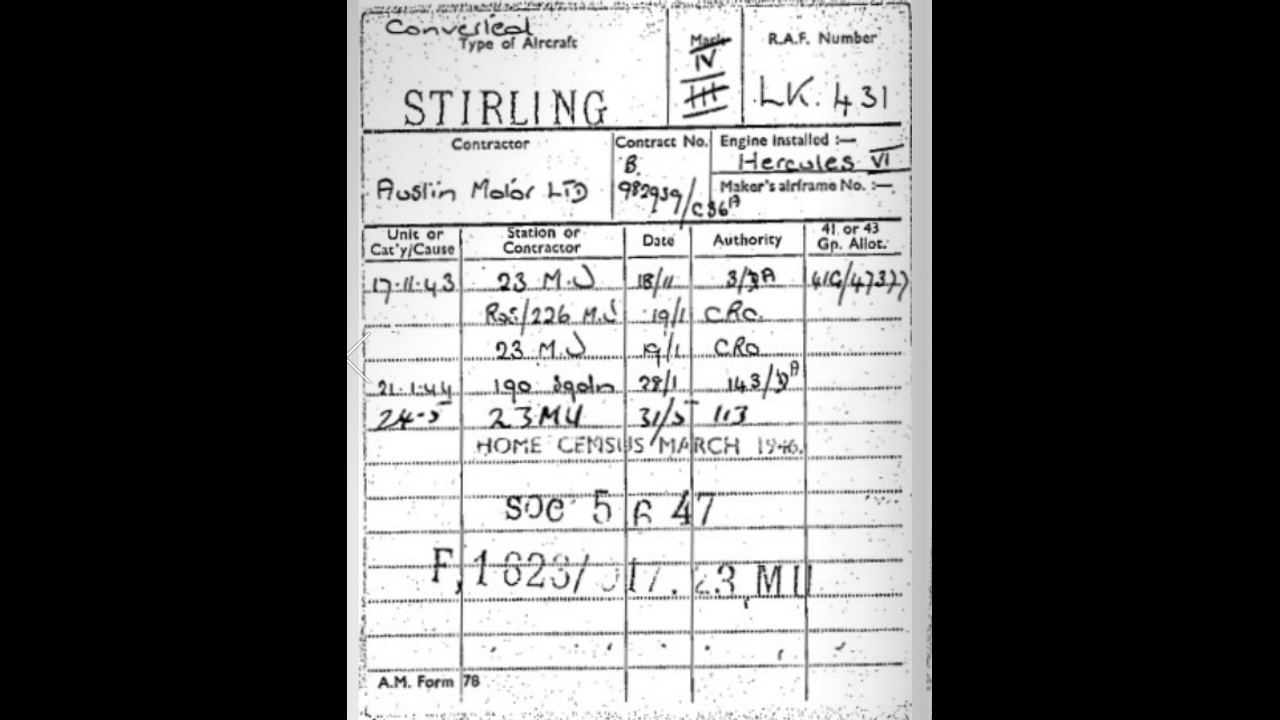 Converted
Type of Aircraft
STIRLING
Mark
IV
III
R.A.F. Number
LK. 431
Contractor
Austin Motor LTD
Contract No.
B.
982939/C36A
Engine installed :—
Hercules VI
Maker's airframe No. :—
Unit or Cat'y/Cause Station or Contractor Date Authority 41 or 43 Gp. Allot.
17.11.43 23 M.U 18/11 3/ A 41G/47377
226 M.U 19/1 CRO.
23 M.U 19/1 CRO
21.1.44 190 Sqdn 28/1 143/ A
24-5 23 MU 31/5 113
HOME CENSUS MARCH 1946.
SOC 5 6 47
F, 17. 23 MU
A.M. Form 78